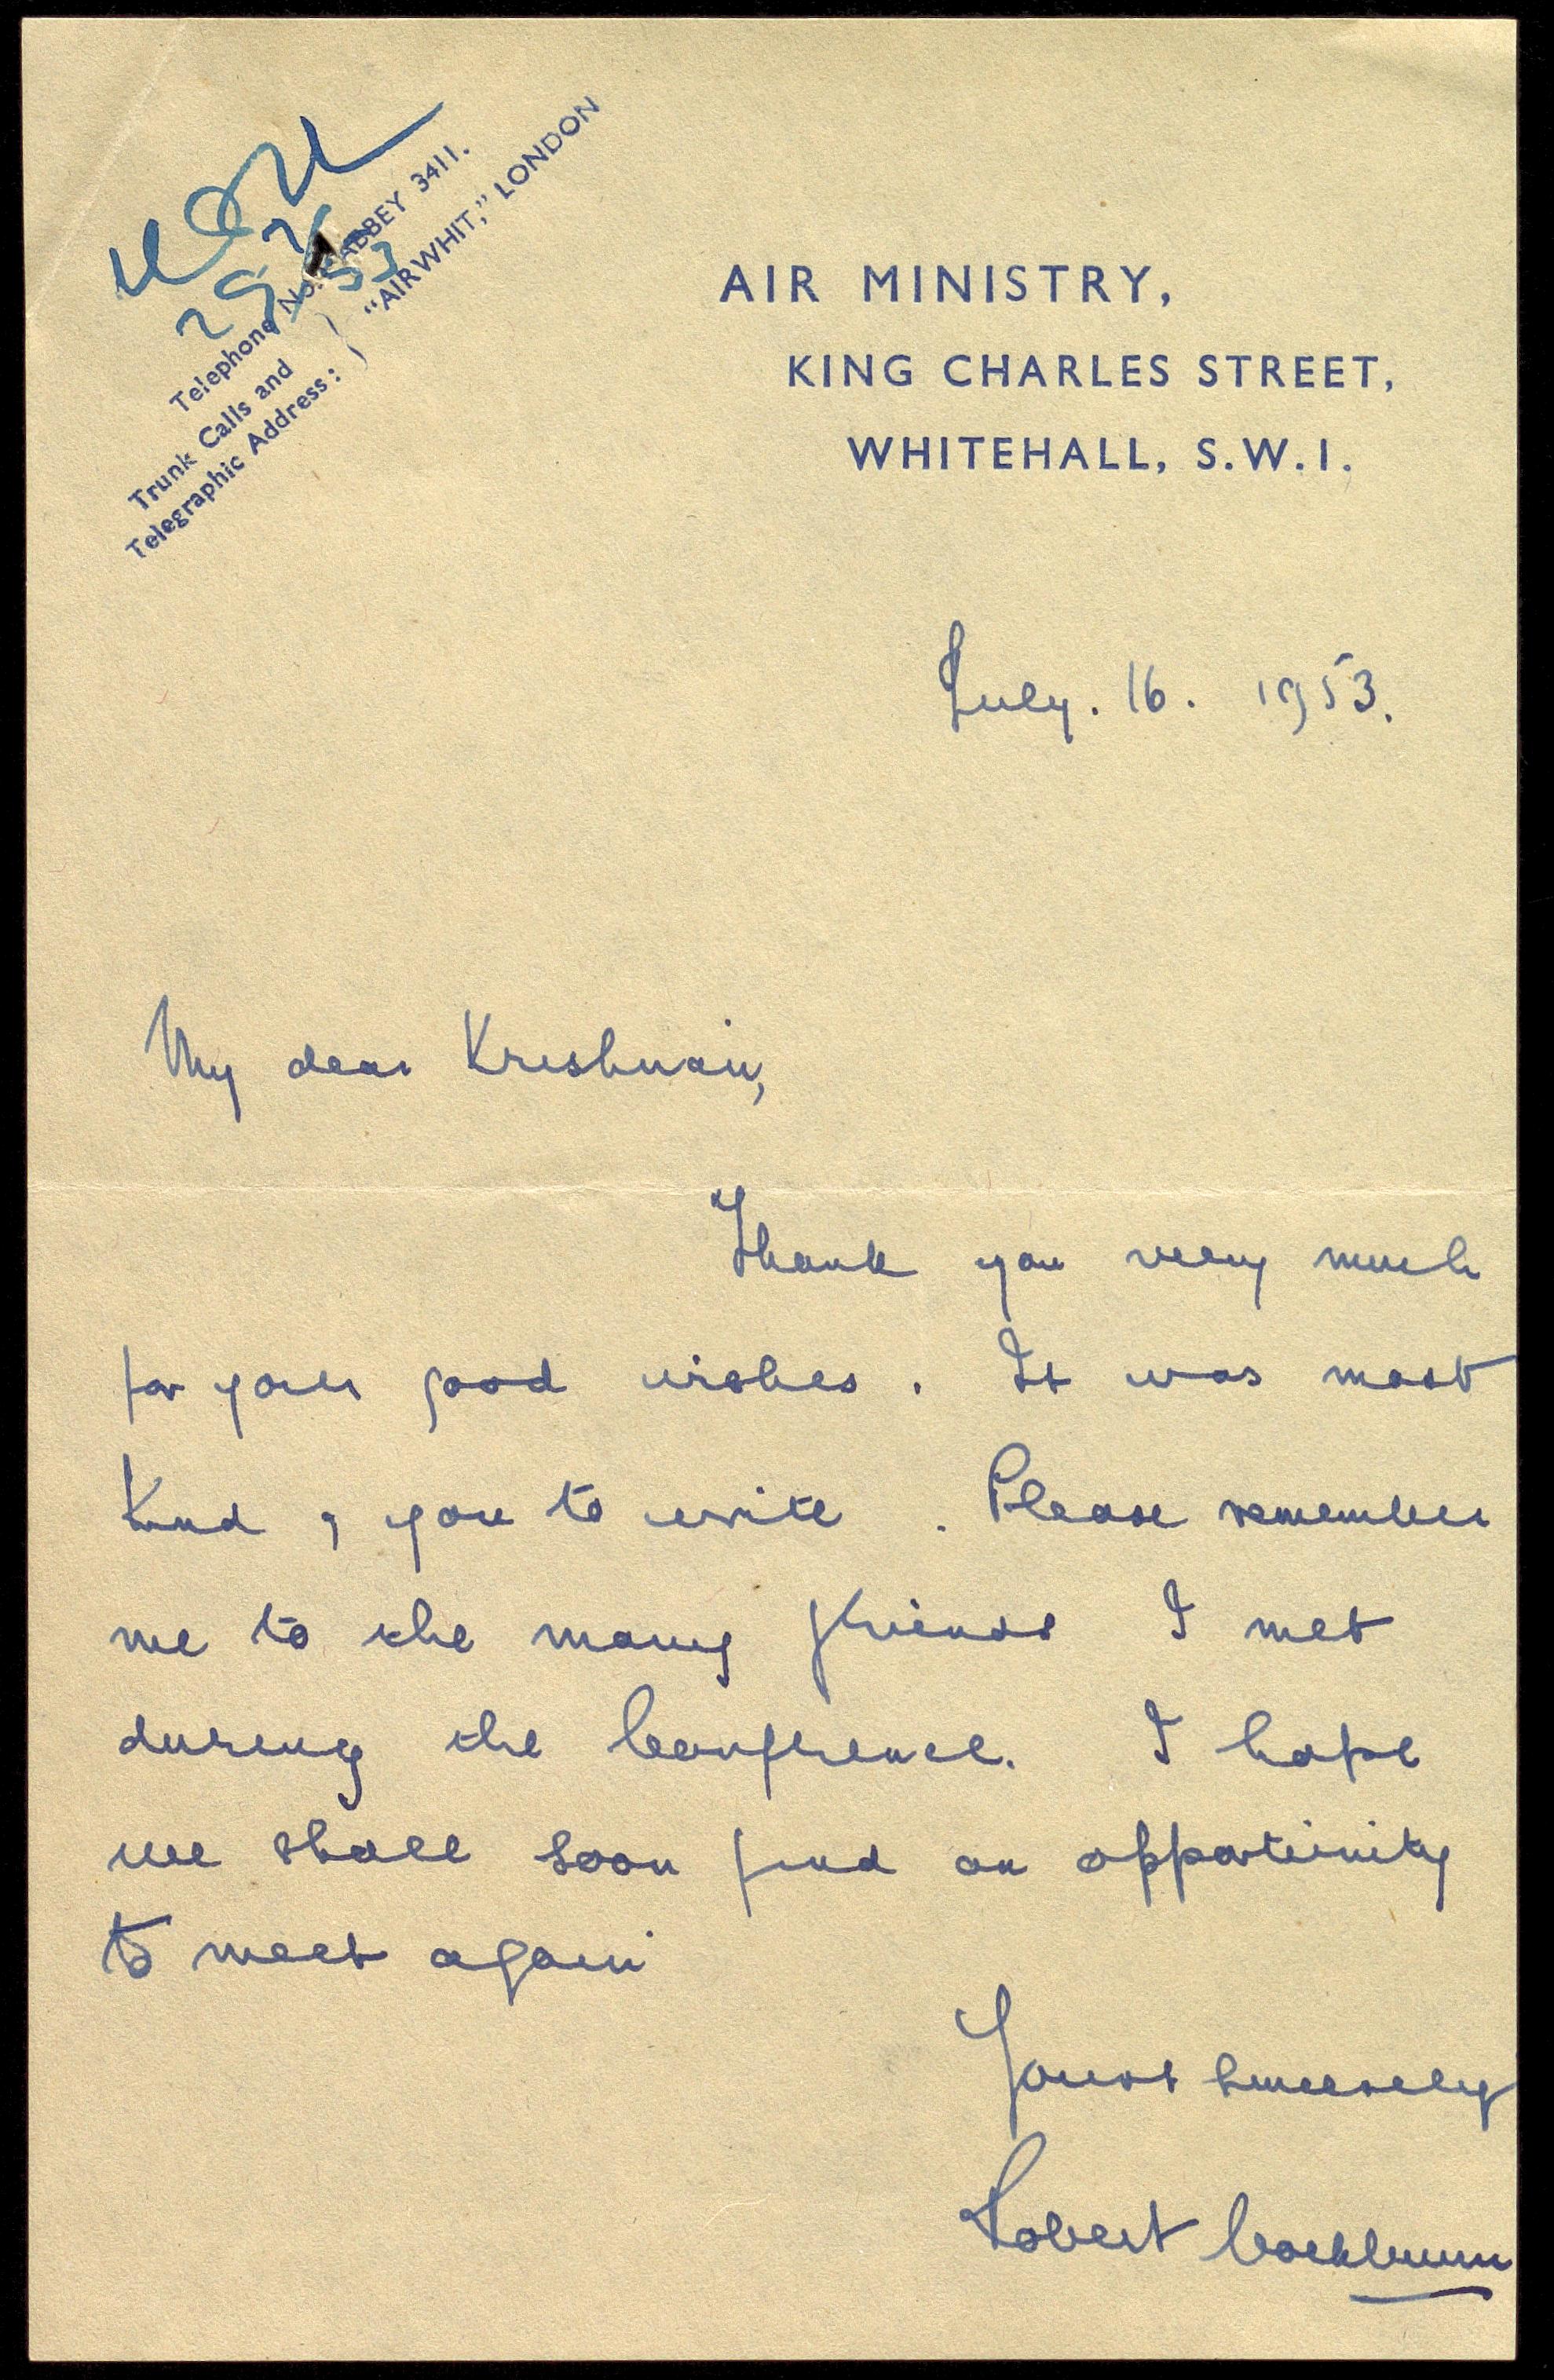 Telephone No.: ABBEY 3411.
Trunk Calls and
Telegraphic Address: } "AIRWHIT," LONDON
AIR MINISTRY,
KING CHARLES STREET,
WHITEHALL, S.W.1.
July. 16. 1953.
My dear
Thank you very much
for your good wishes. It was most
Kind of you to write. Please remember
me to the many friends I met
during the Conference. I hope
we shall soon find an opportunity
to meet again
Yours sincerely
Robert Cockburn